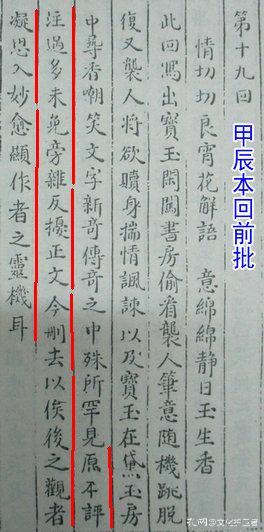 第十九回
情切切良宵花解語　意綿綿靜日玉生香
此回寫出寶玉閑闖書房偷看襲人筆意隨機跳脫
復又襲人將欲贖身揣情諷諫以及寶玉在黛玉房
中尋香嘲笑文字新奇傳奇之中殊所罕見原本評
注過多未免旁雜反擾正文今刪去以俟後之觀者
凝思入妙愈顯作者之靈機耳
甲辰本回前批